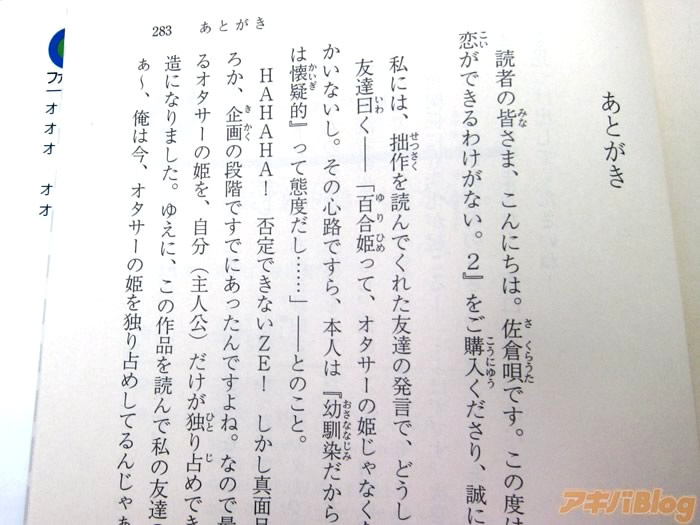 あとがき
読者の皆さま、こんにちは。佐倉唄です。この度は
恋ができるわけがない。2』をご購入くださり、誠に
私には、拙作を読んでくれた友達の発言で、どうし
友達曰く――「百合姫って、オタサーの姫じゃなくね
かいないし。その心路ですら、本人は『幼馴染だから
は懐疑的』って態度だし……」――とのこと。
HAHAHA! 否定できないZE! しかし真面目
ろか、企画の段階ですでにあったんですよね。なので最
るオタサーの姫を、自分(主人公)だけが独り占めでき
造になりました。ゆえに、この作品を読んで私の友達の
ぁ～、俺は今、オタサーの姫を独り占めしてるんじゃぁ
283 あとがき
ファ
ー オ オ オ オ
アキバBlog